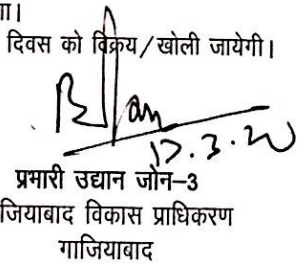 ा।
दिवस को विक्रय/खोली जायेगी।
17.3.20
प्रभारी उद्यान जोन–3
जियाबाद विकास प्राधिकरण
गाजियाबाद